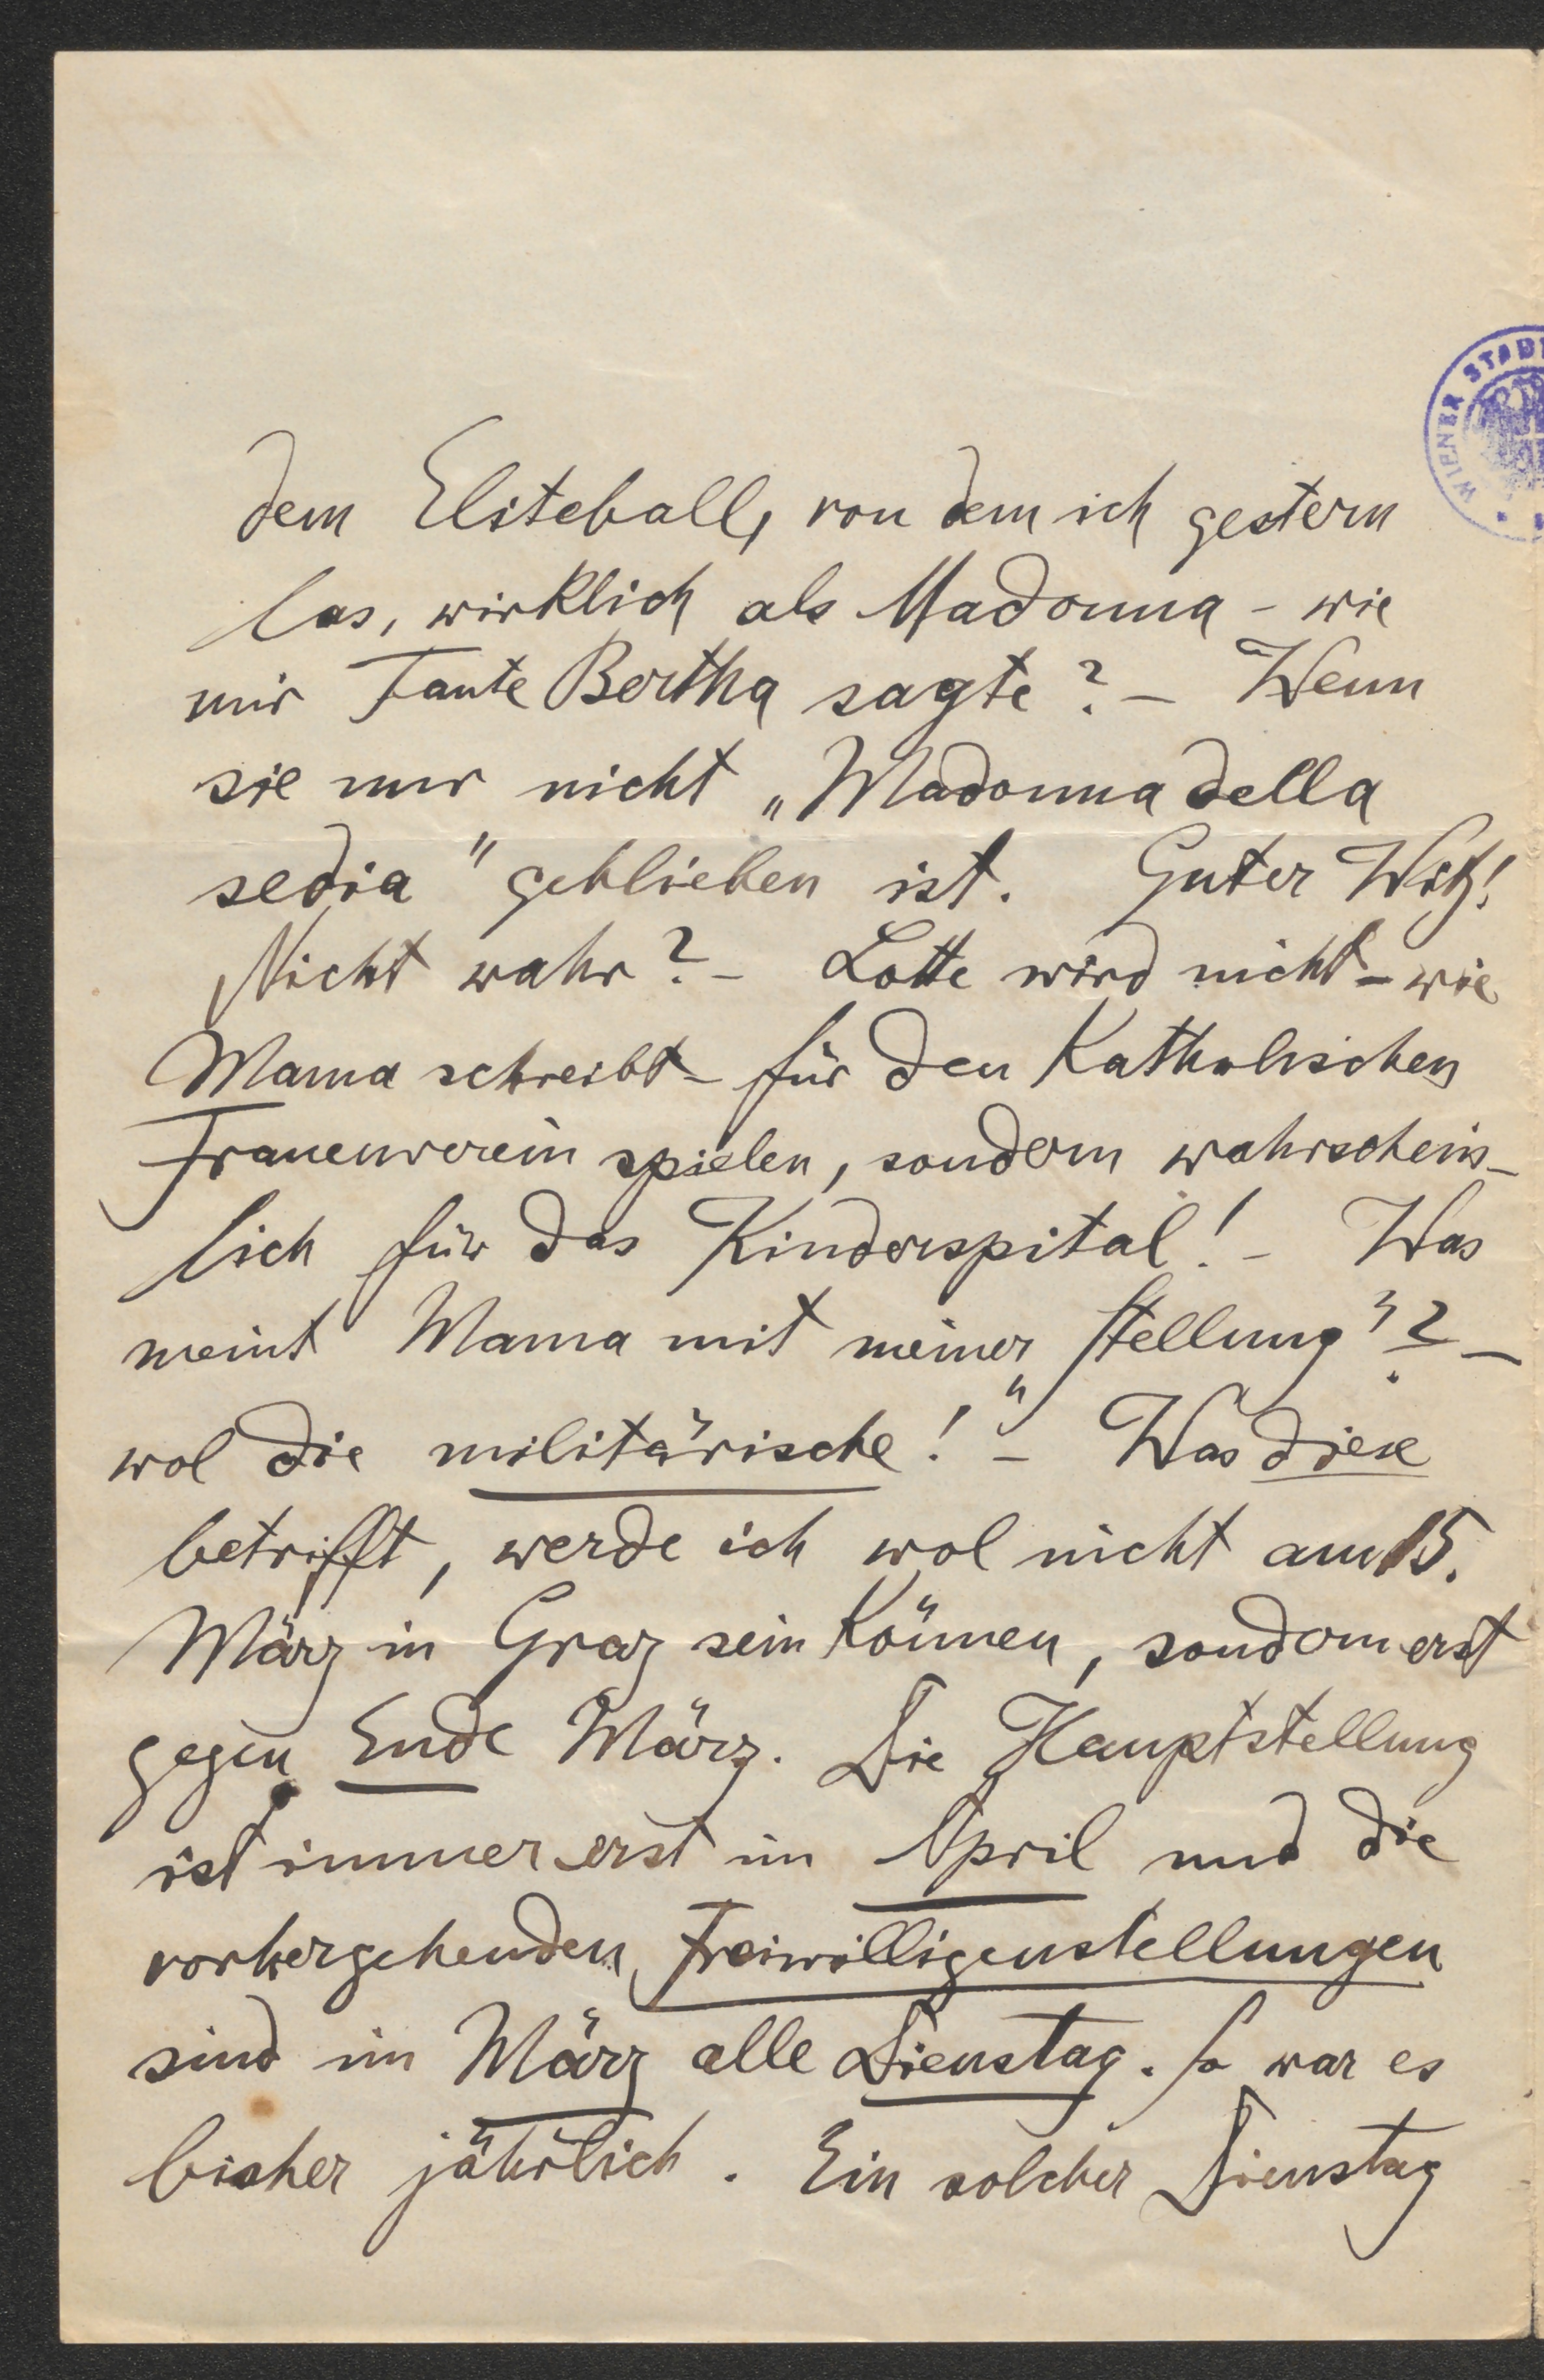 dem Eliteball, von dem ich gestern
las, wirklich als Madonna - wie
mir Tante Bertha sagte? - Wenn
sie nur nicht „Madonna della
sedia" geblieben ist. Guter Witz!
Nicht wahr? - Lotte wird nicht - wie
Mama schreibt - für den Katholischen
Frauenverein spielen, sondern wahrschein-
lich für das Kinderspital! - Was
meint Mama mit meiner „Stellung"? -
wol die militärische! - Was diese
betrifft, werde ich wol nicht am 15.
März in Graz sein können, sondern erst
gegen Ende März. Die Hauptstellung
ist immer erst im April und die
vorhergehenden Freiwilligenstellungen
sind im März alle Dienstag. So war es
bisher jährlich. Ein solcher Dienstag
WIENER STADT